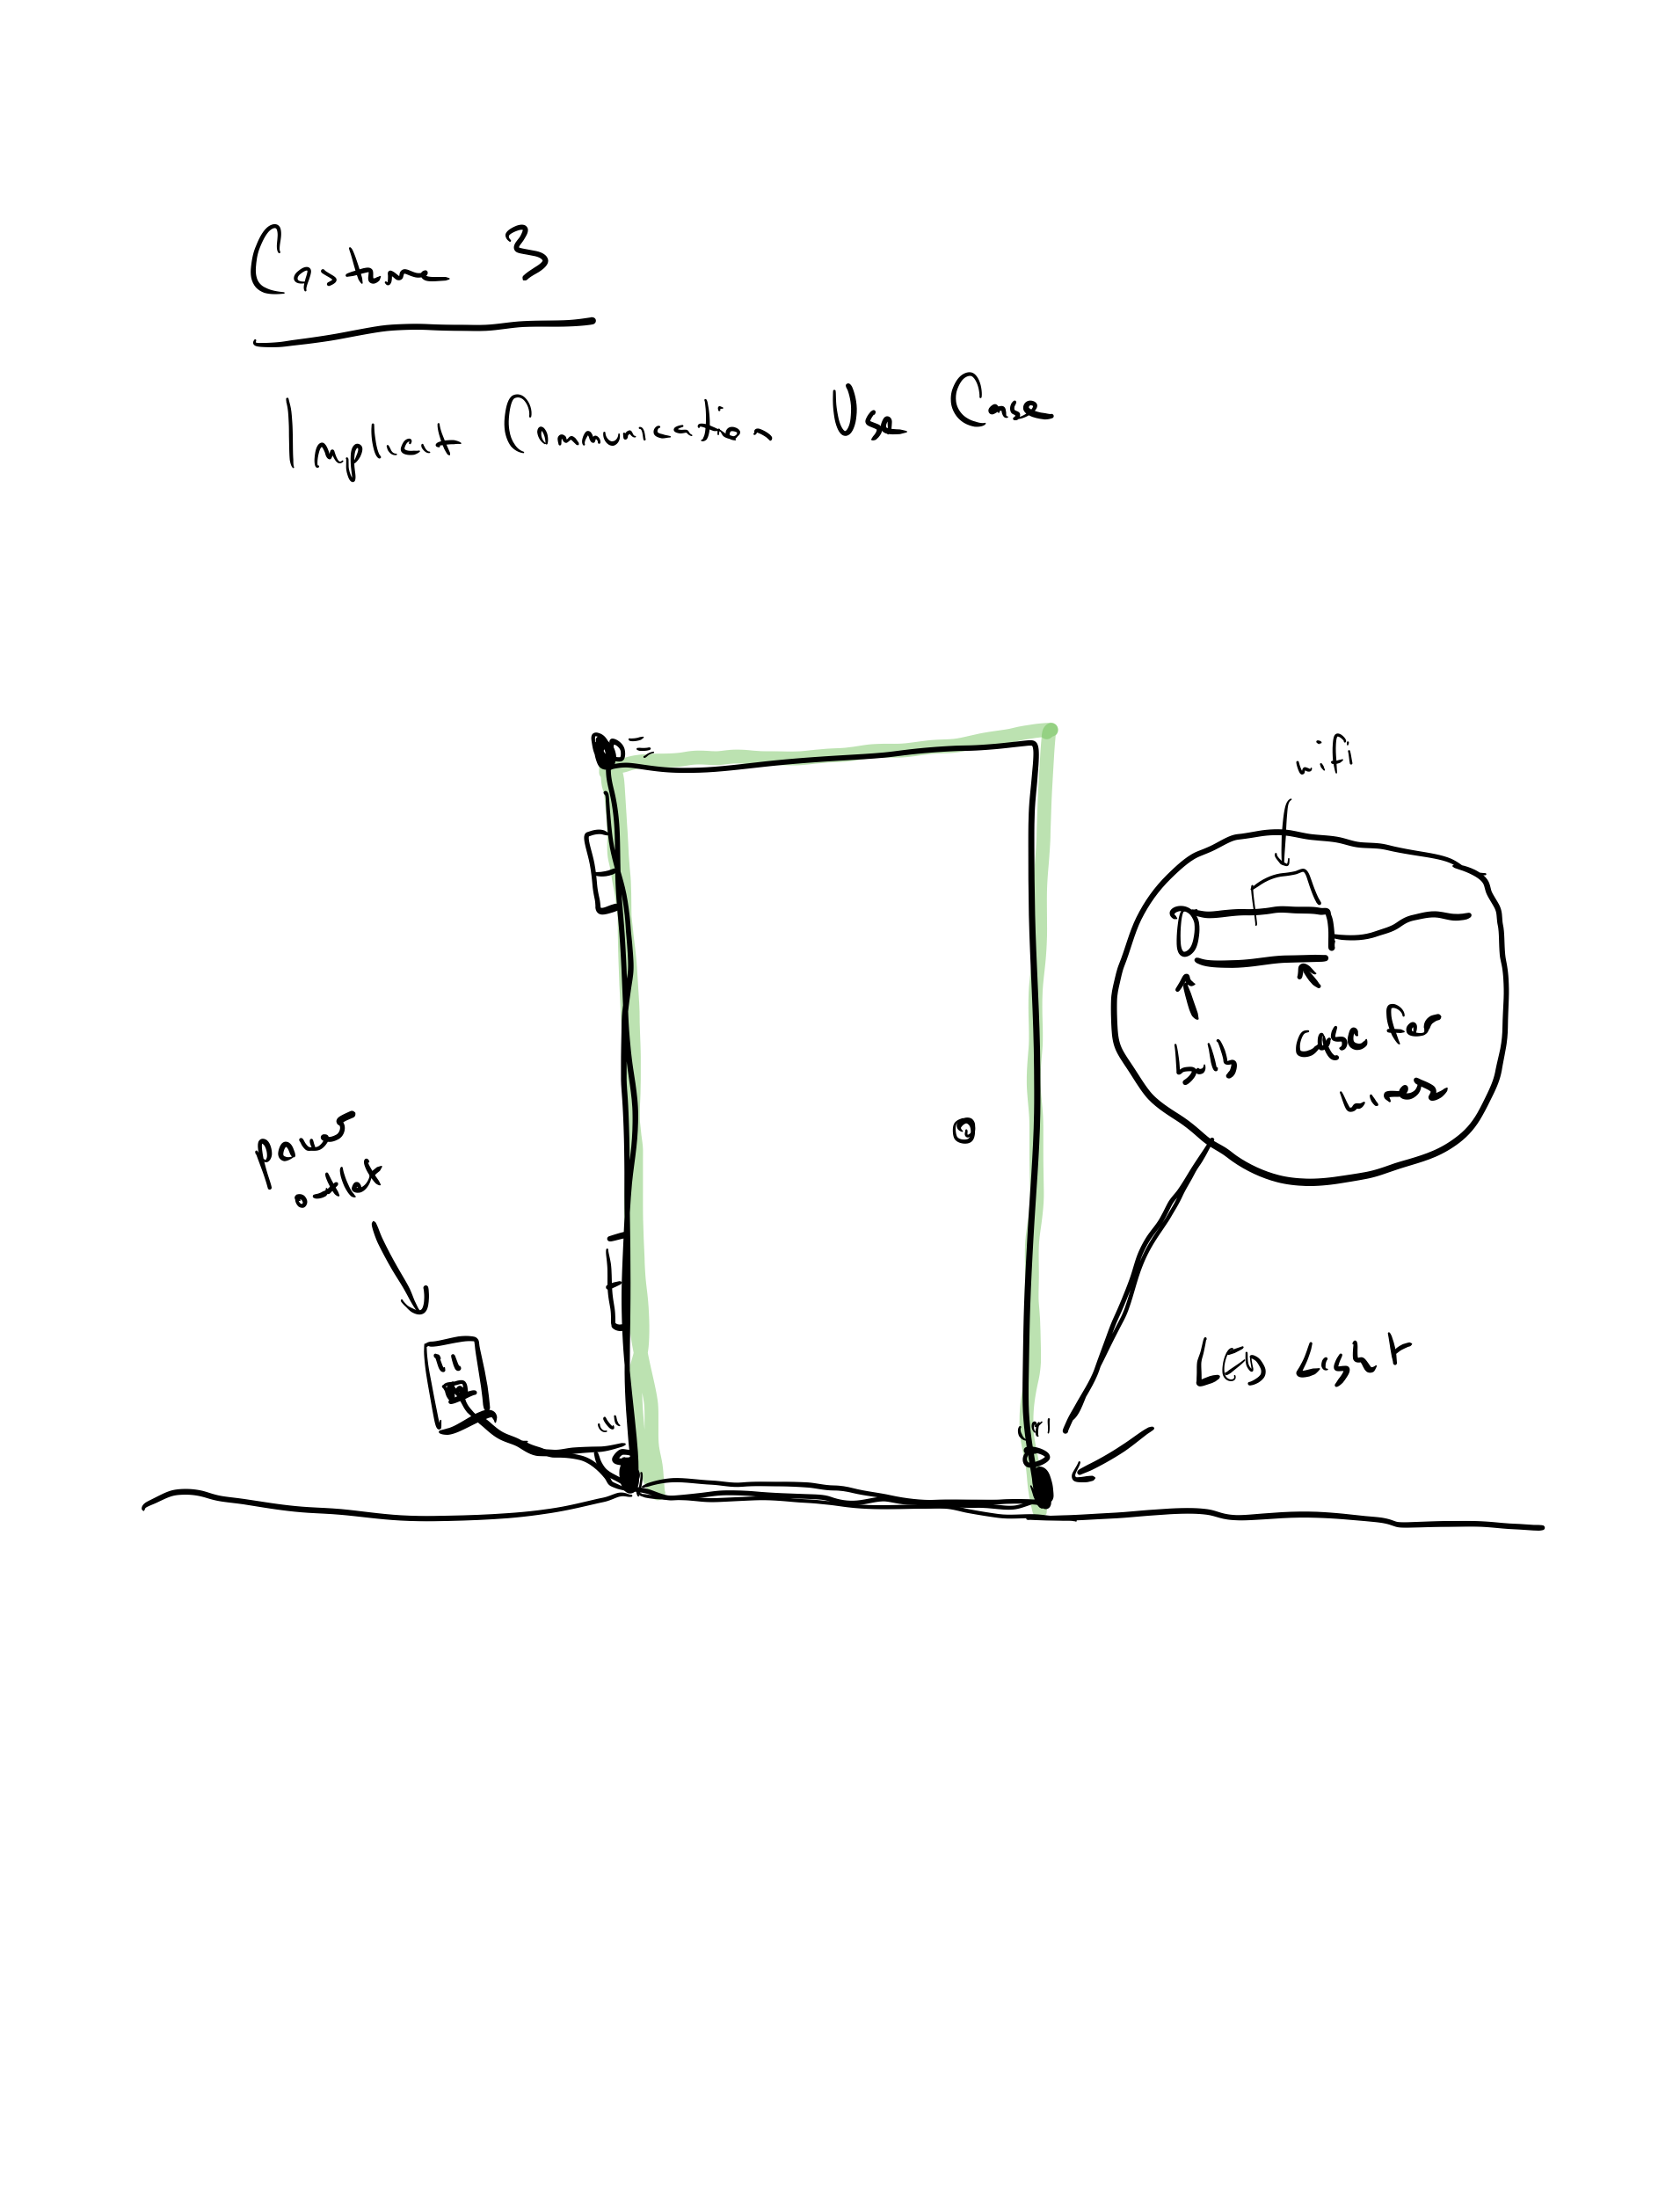 3
Implicit Communication Use Case
wifi
bulb
case for
wires
power
outlet
LED Light